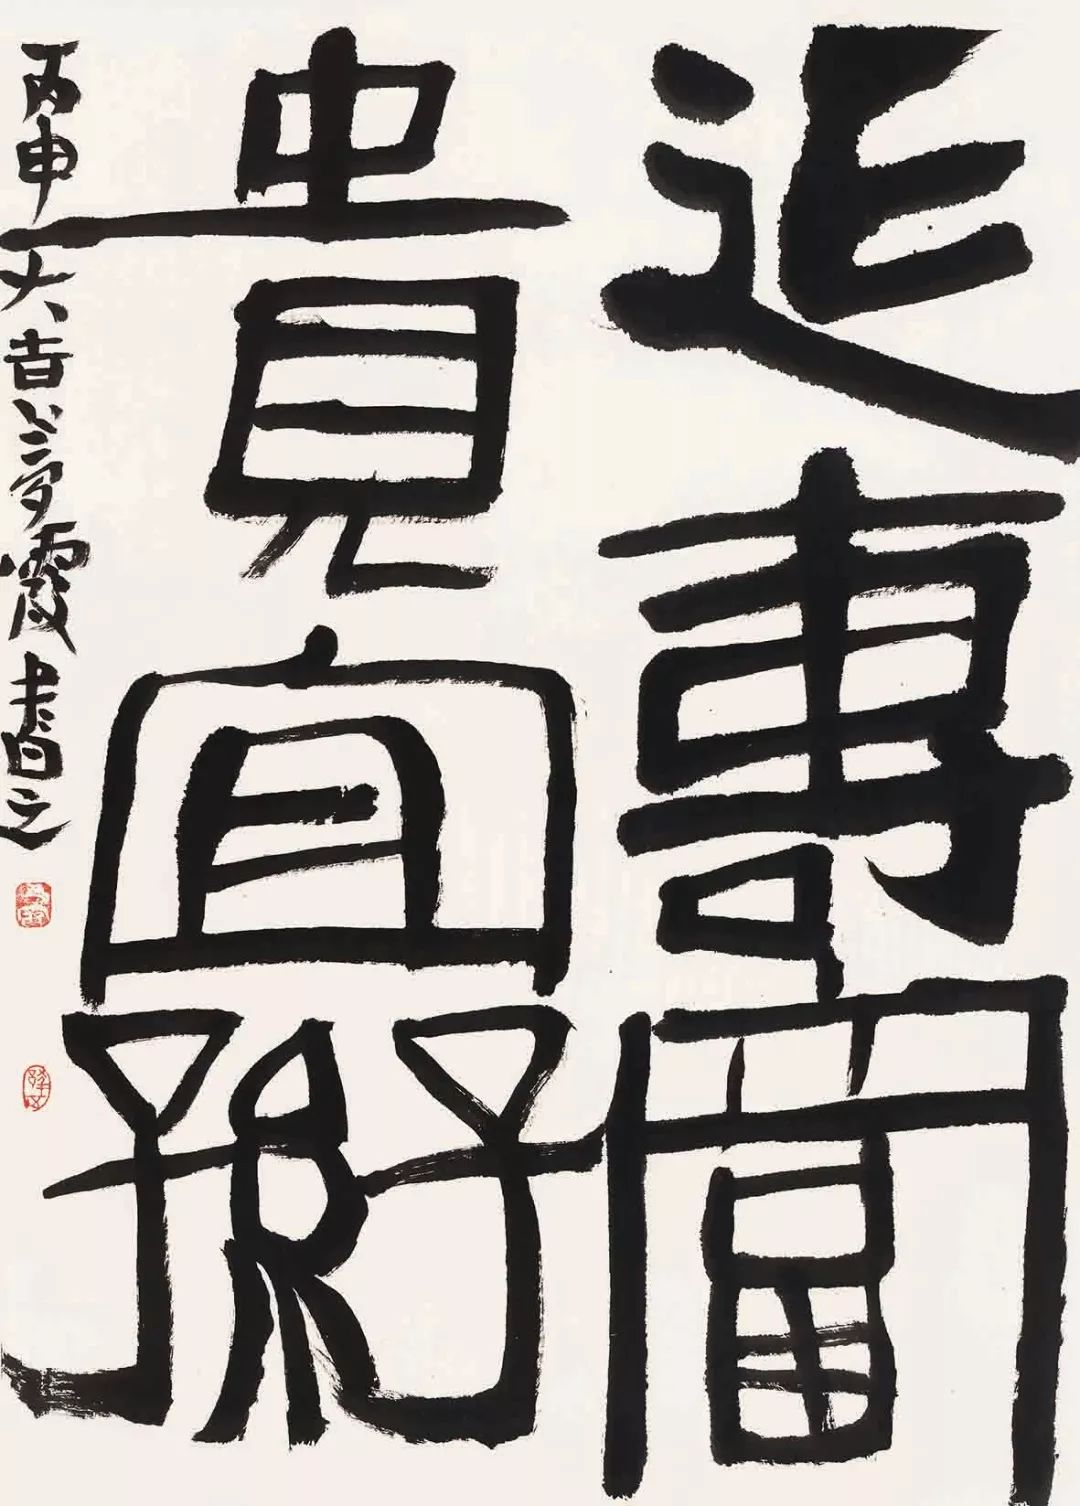 延壽富
貴宜子孫
丙申大吉霞書之